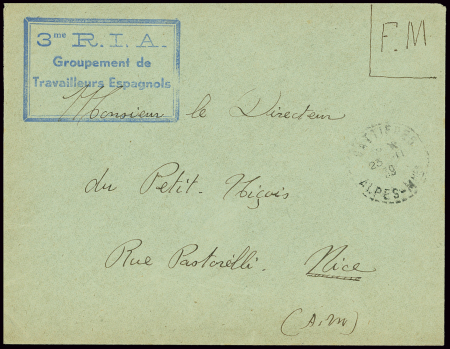 3me R.I.A.
Groupement de
Travailleurs Espagnols
F.M
Monsieur le Directeur
du Petit-Niçois
Rue Pastorelli. Nice
(A.M)
GATTIERES
23 -11
39
ALPES-Mmes